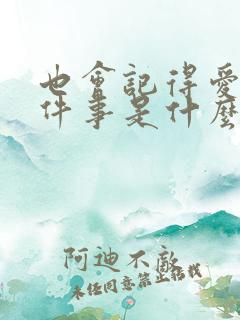 也會記得愛
件事是什麼
阿迪不敵
未经同意禁止搭載